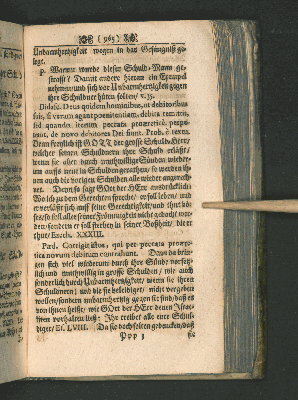 ( 965 )
Unbarmhertzigkeit wegen in das Gefängniß ge-
legt.
p. Warum wurde dieser Schuld-Mann ge-
strafft? Damit andere hieran ein Exempel
nehmen und sich vor Unbarmhertzigkeit gegen
ihre Schuldner hüten sollen/ v. 35.
Didasc. Deus quidem hominibus, ut debitoribus
suis, si veram agant pœnitentiam, debita remittit,
sed quando iterum peccata proæretica perpe-
trant, de novo debitores Dei fiunt. Prob. è textu.
Denn freylich ist GOTT der grosse Schuld-Herr/
welcher seinen Schuldnern ihre Schuld erläßt/
wenn sie aber durch muthwillige Sünden wieder-
um auffs neue in Schulden gerathen/ so werden ih-
nen auch die vorigen Schulden alle wieder angerech-
net. Denn so sagt GOtt der HErr ausdrücklich:
Wo ich zu dem Gerechten spreche/ er soll leben/ und
er verläßt sich auff seine Gerechtigkeit/ und thut bö-
ses/ so soll alle seiner Frömmigkeit nicht gedacht wer-
den/ sondern er soll sterben in seiner Boßheit/ die er
thut/ Ezech. XXXIII.
Pæd. Corrigit illos, qui per peccata proære-
tica novum debitum contrahunt. Denn da brin-
gen sich viel wiederum durch ihre Sünde vorsetz-
lich und muthwillig in grosse Schulden/ wie auch
sonderlich durch Unbarmhertzigkeit/ wenn sie ihren
Schuldnern/ und die sie beleidiget/ nicht vergeben
wollen/ sondern unbarmhertzig gegen sie sind/ daß es
von ihnen heist/ wie GOtt der HErr denen Israe-
liten vorhalten ließ: Ihr treibet alle eure Schul-
diger/ Es. LVIII. Da sie doch solten gedencken/ daß
Ppp 3
sie